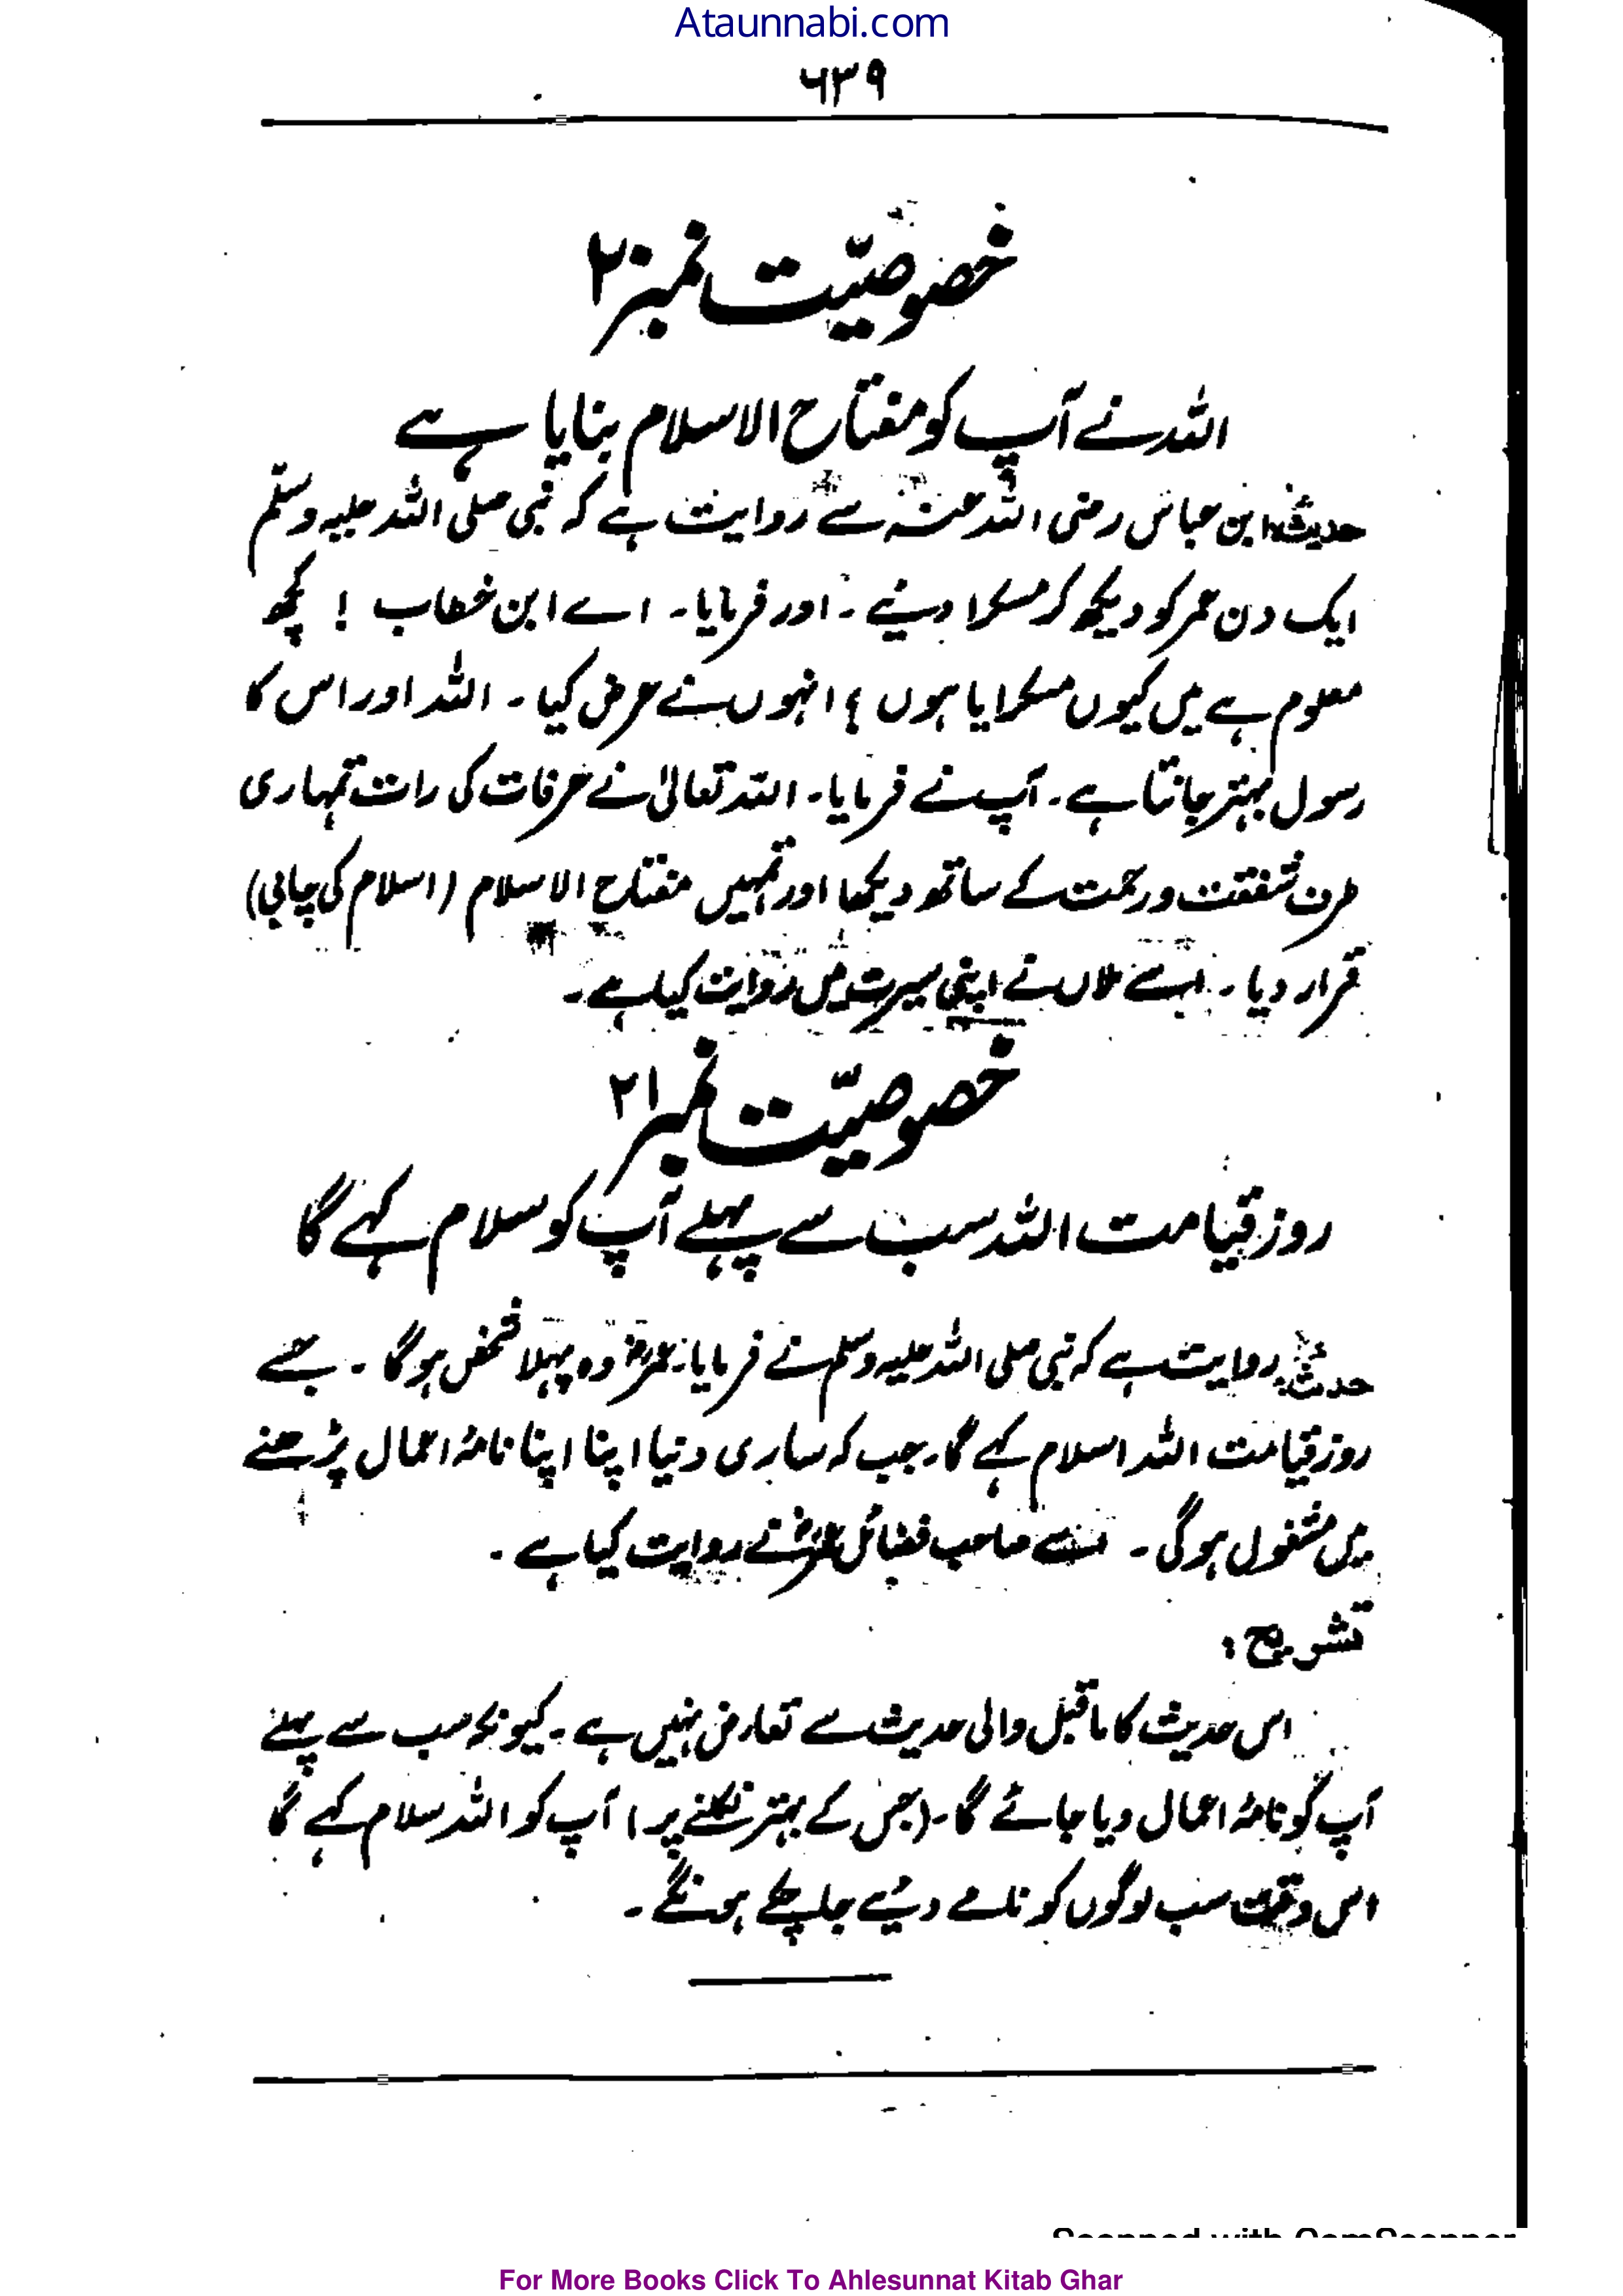 Ataunnabi.com
۶۳۹
خصوصیّت نمبر ۲۰
اللہ نے آپ کو مفتاح الاسلام بنایا ہے
حدیث: ابن عباس رضی اللہ عنہ سے روایت ہے کہ نبی صلی اللہ علیہ وسلم
ایک دن عمر کو دیکھ کر مسکرا دیئے ۔ اور فرمایا۔ اے ابن خطاب ! کچھ
معلوم ہے میں کیوں مسکرایا ہوں ؟ انہوں نے عرض کیا ۔ اللہ اور اس کا
رسول بہتر جانتا ہے ۔ آپ نے فرمایا۔ اللہ تعالیٰ نے عرفات کی رات تمہاری
طرف شفقت و رحمت کے ساتھ دیکھا اور تمہیں مفتاح الاسلام (اسلام کی چابی)
قرار دیا ۔ اسے ملاں نے اپنی سیرت میں روایت کیا ہے ۔
خصوصیّت نمبر ۲۱
روز قیامت اللہ سب سے پہلے آپ کو سلام کہے گا
حدیث: روایت ہے کہ نبی صلی اللہ علیہ وسلم نے فرمایا: عمرؓ وہ پہلا شخص ہو گا ۔ جسے
روز قیامت اللہ اسلام کہے گا۔ جب کہ ساری دنیا اپنا اپنا نامۂ اعمال پڑھنے
میں مشغول ہو گی ۔ اسے صاحب فضائل عمرؓ نے روایت کیا ہے ۔
تشریح :
اس حدیث کا ماقبل والی حدیث سے تعارض نہیں ہے ۔ کیونکہ سب سے پہلے
آپ کو نامۂ اعمال دیا جائے گا ۔ (جس کے بہتر نکلنے پر) آپ کو اللہ سلام کہے گا
اس وقت سب لوگوں کو نامے دیئے جا چکے ہونگے ۔
Scanned with CamScanner
For More Books Click To Ahlesunnat Kitab Ghar